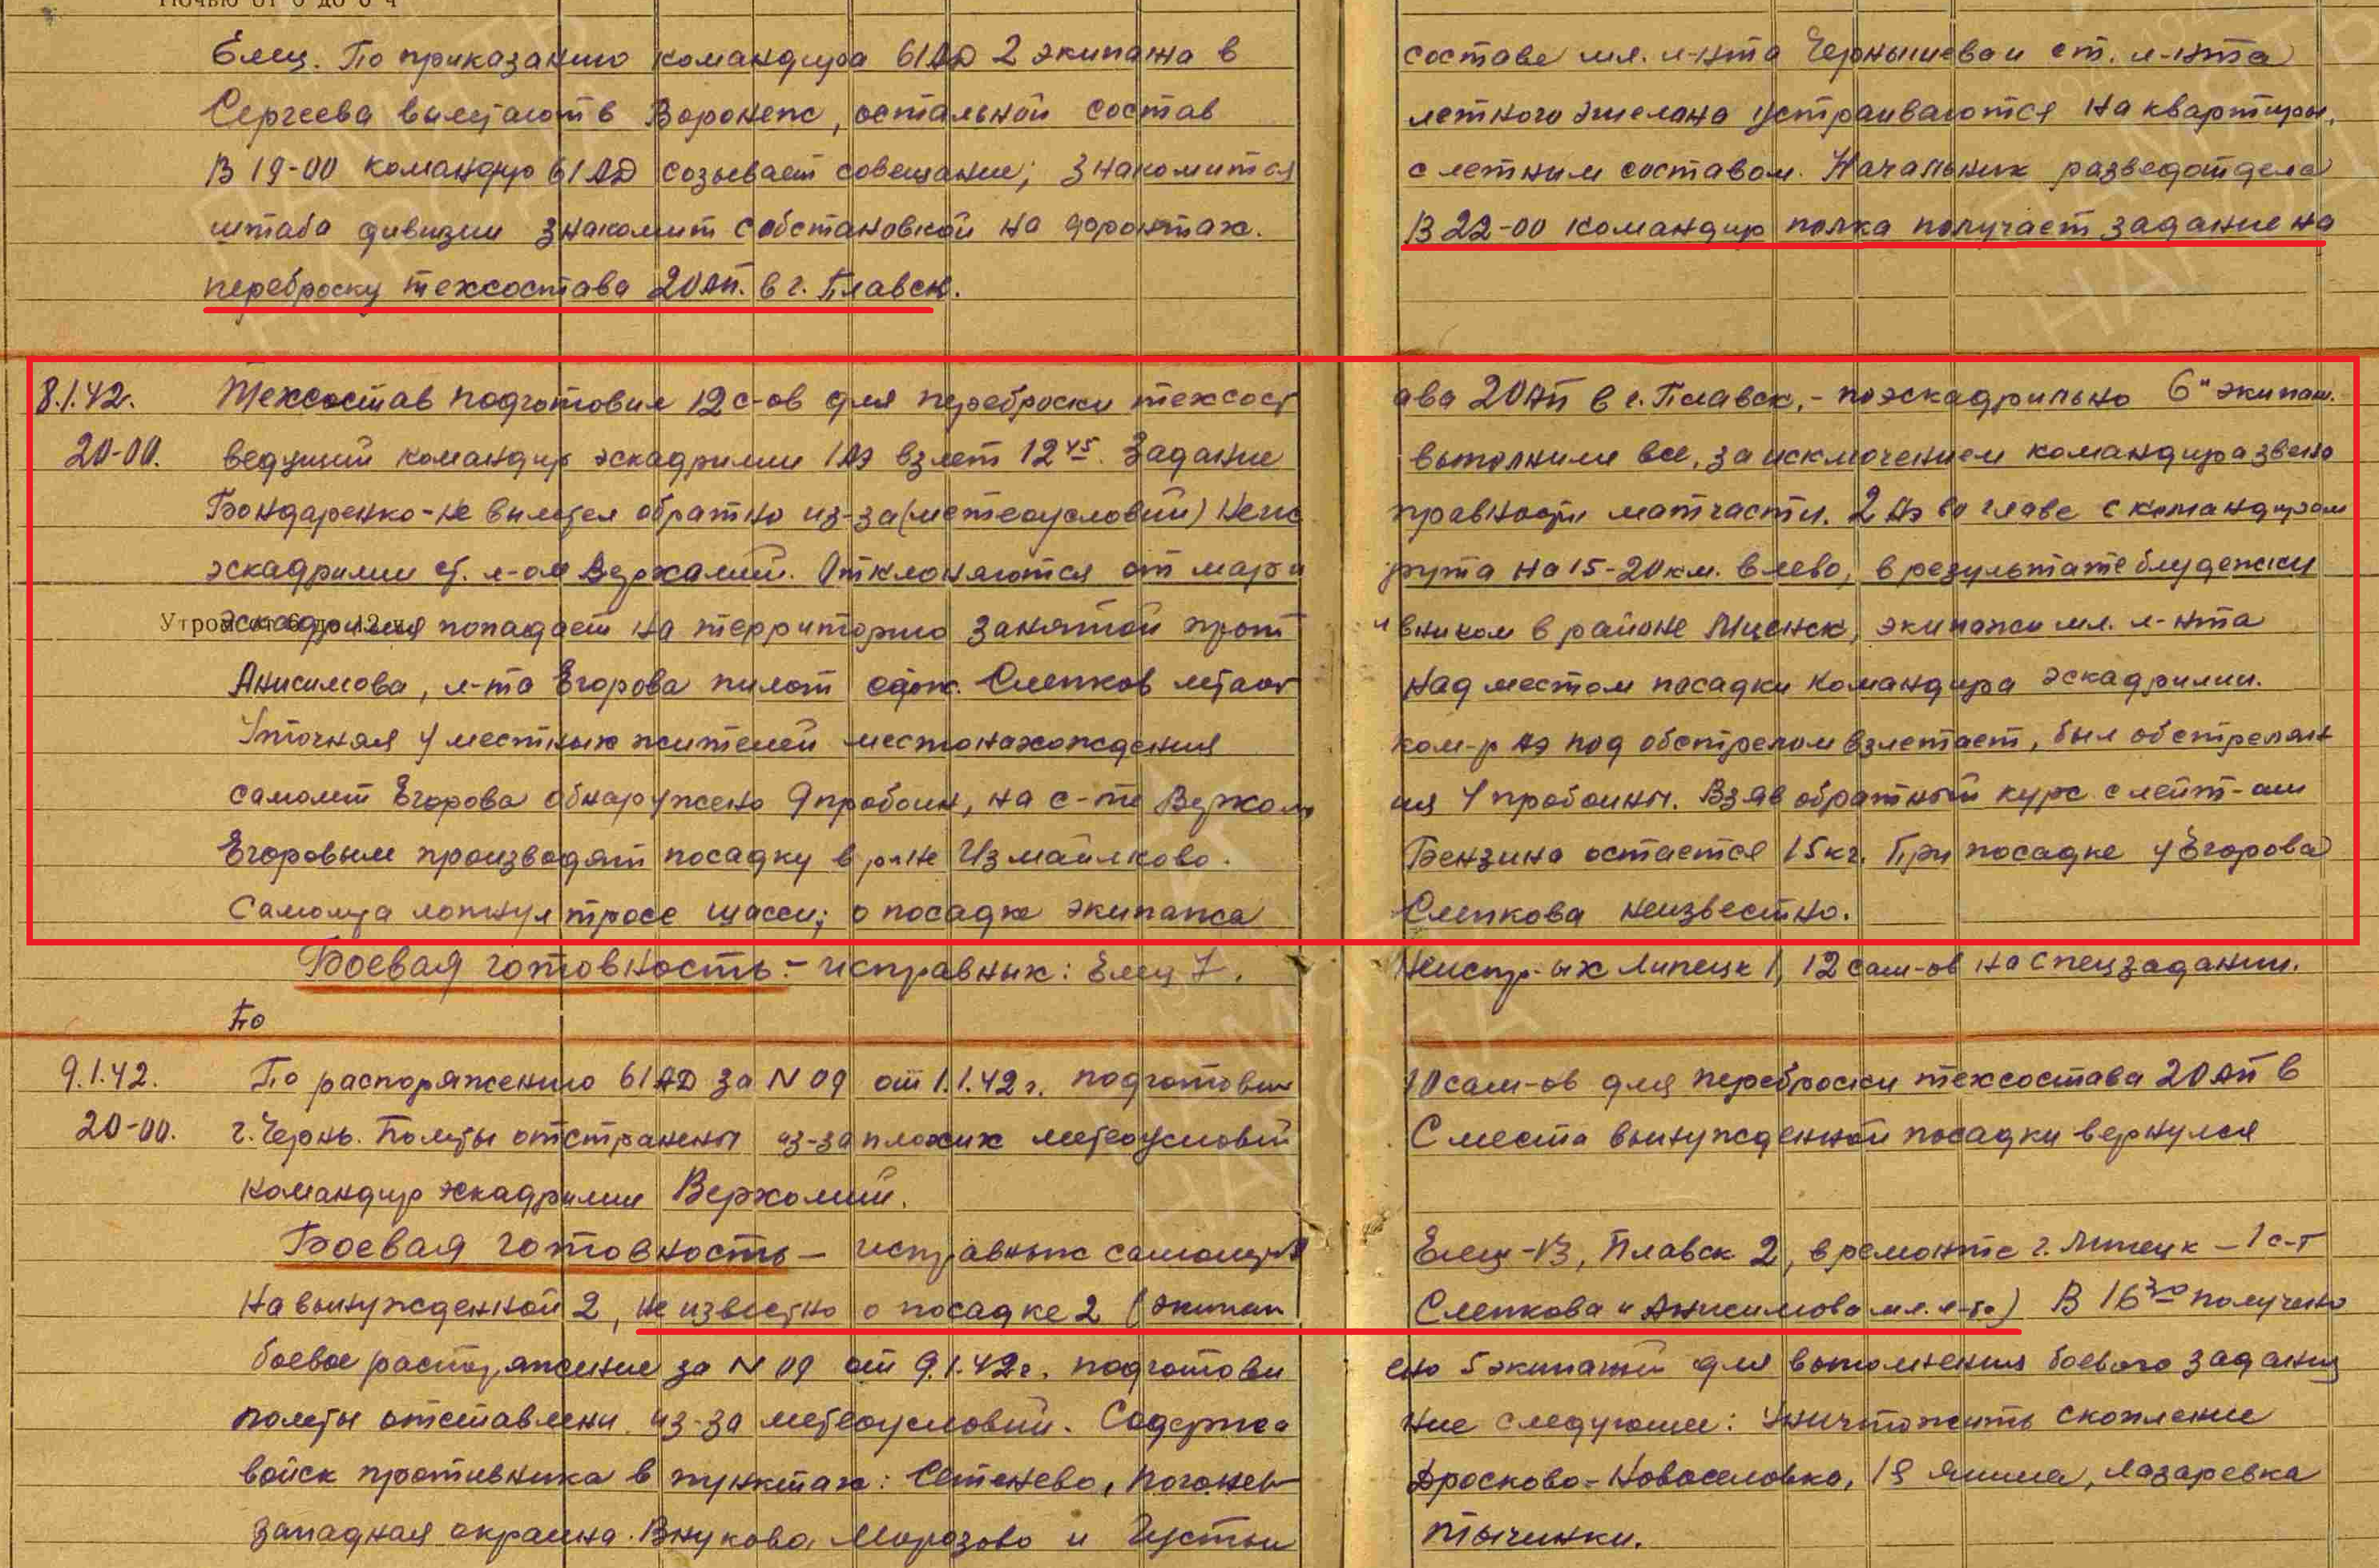 Ночью от 0 до 6 ч
Елец. По приказанию командира 61АД 2 экипажа в составе мл. л-нта Чернышева и ст. л-нта
Сергеева вылетают в Воронеж, остальной состав летного эшелона устраиваются на квартиры.
В 19-00 командир 61 АД созывает совещание; знакомится с летным составом. Начальник разведотдела
штаба дивизии знакомит с обстановкой на фронтах. В 22-00 командир полка получает задание на
переброску техсостава 20АП. в г. Плавск.
8.1.42. Техсостав подготовил 12 с-ов для переброски техсостава 20АП в г. Плавск, - поэскадрильно 6" экипаж.
20-00. ведущий командир эскадрилии 1АЭ взлет 12 45. Задание выполнили все, за исключением командира звена
Бондаренко - не вылетел обратно из-за (метеоусловий) неисправности матчасти. 2 АЭ во главе с командиром
эскадрилии ст. л-ом Верхолий. Отклоняются от маршрута на 15-20 км. влево, в результате блудежки
Утром от 6 до 12 ч
эскадрилия попадает на территорию занятой противником в районе Мценск, экипажи мл. л-нта
Анисимова, л-та Егорова пилот серж. Слепков летают над местом посадки командира эскадрилии.
Уточняя у местных жителей местонахождения ком-р АЭ под обстрелом взлетает, был обстрелян
самолет Егорова обнаружено 9 пробоин, на с-те Верхолия 4 пробоины. Взяв обратный курс с лейт-ом
Егоровым производят посадку в р-не Измайлково. Бензина остается 15 кг. При посадке у Егорова
Самолета лопнул тросе шасси; о посадке экипажа Слепкова неизвестно.
Боевая готовность - исправных: Елец 7. Неиспр-ых Липецк 1, 12 сам-ов на спецзадании.
По
9.1.42. По распоряжению 61 АД за N 09 от 1.1.42 г. подготовили 10 сам-ов для переброски техсостава 20 АП в
20-00. г. Чернь. Полеты отстранены из-за плохих метеоусловий С места вынужденной посадки вернулся
командир эскадрилии Верхолий.
Боевая готовность - исправных самолетов Елец - 13, Плавск 2, в ремонте г. Липецк - 1 с-т
На вынужденной 2, не известно о посадке 2 (экипаж Слепкова и Анисимова мл. л-та) В 16 30 получено
боевое распоряжение за N 09 от 9.1.42 г. подготовлено 5 экипажей для выполнения боевого задания
полеты отставлены из-за метеоусловий. Содержание следующее: Уничтожить скопление
войск противника в пунктах: Сетенево, Дросково - Новоселовка, Лазаревка
западная окраина. Внуково, Морозово и Густые Тычинки.